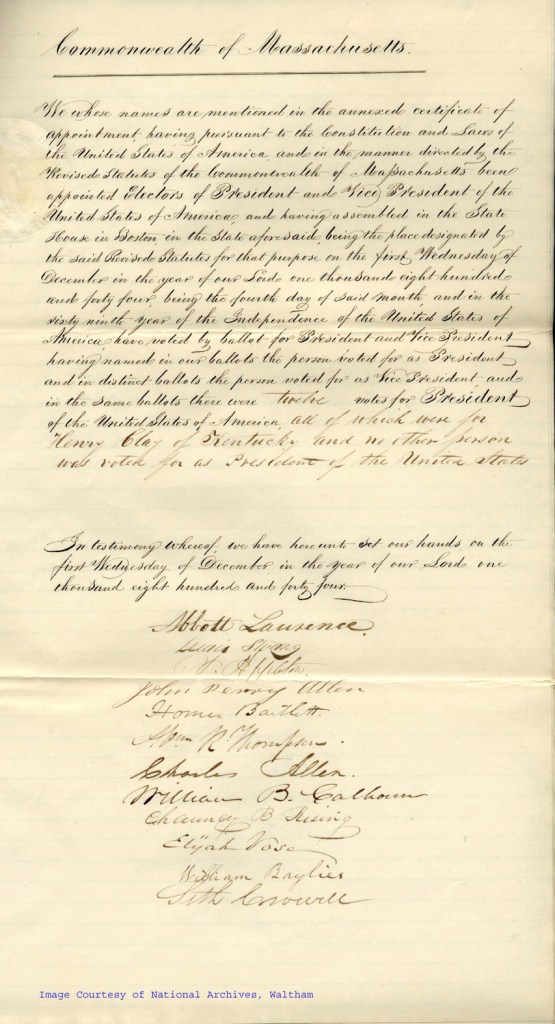 Commonwealth of Massachusetts.
We whose names are mentioned in the annexed certificate of
appointment, having pursuant to the Constitution and Laws of
the United States of America, and in the manner directed by the
Revised Statutes of the Commonwealth of Massachusetts been
appointed Electors of President and Vice President of the
United States of America, and having assembled in the State
House in Boston, in the State aforesaid, being the place designated by
the said Revised Statutes for that purpose on the first Wednesday of
December in the year of our Lord one thousand eight hundred
and forty four, being the fourth day of said month, and in the
sixty ninth year of the Independence of the United States of
America, have voted by ballot for President and Vice President
having named in our ballots the person voted for as President
and in distinct ballots the person voted for as Vice President, and
in the same ballots there were twelve votes for President
of the United States of America, all of which were for
Henry Clay of Kentucky and no other person
was voted for as President of the United States
In testimony whereof, we have hereunto set our hands on the
first Wednesday of December in the year of our Lord one
thousand eight hundred and forty four.
Abbott Lawrence.
Lewis Strong
N. Appleton
John Henry Allen
Homer Bartlett.
R. Thompson.
Charles Allen.
William B. Calhoun
Chauncy B Rising
Elijah Vose
William Baylies
Seth Crowell
Image Courtesy of National Archives, Waltham